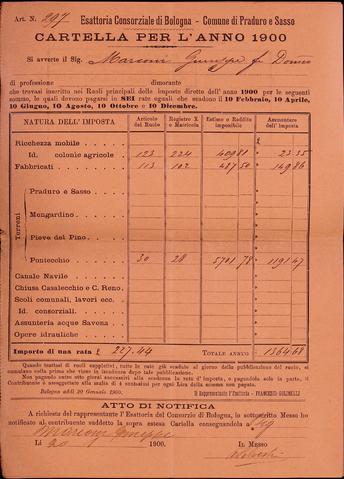 Art. N. 297 Esattoria Consorziale di Bologna - Comune di Praduro e Sasso
CARTELLA PER L'ANNO 1900
Si avverte il Sig. Marconi Giuseppe fu Dom.co
di professione dimorante
che trovasi inscritto nei Ruoli principali delle imposte dirette dell'anno 1900 per le seguenti
somme, le quali devono pagarsi in SEI rate eguali che scadono il 10 Febbraio, 10 Aprile,
10 Giugno, 10 Agosto, 10 Ottobre e 10 Dicembre.
NATURA DELL'IMPOSTA Articolo del Ruolo Registro N. Matricola Estimo o Reddito imponibile Ammontare dell'Imposta
Ricchezza mobile
Id. colonie agricole 123 224 409 81 23 35
Fabbricati 113 102 487 50 149 86
Terreni
Praduro e Sasso
Mongardino
Pieve del Pino
Pontecchio 30 28 5701 78 1191 47
Canale Navile
Chiusa Casalecchio e C. Reno
Scoli comunali, lavori ecc.
Id. consorziali
Assunteria acque Savena
Opere idrauliche
Importo di una rata £ 227.44 TOTALE ANNUO 1364 68
Quando trattasi di ruoli suppletivi, tutte le rate già scadute al giorno della pubblicazione del ruolo, si
cumulano colla prima che viene in iscadenza dopo tale pubblicazione.
Non pagando entro otto giorni successivi alla scadenza la rata d'imposta, o pagandola solo in parte, il
Contribuente è assoggettato alla multa di 4 centesimi per ogni Lira della somma non pagata.
Bologna addì 20 Gennaio 1900. Il Rappresentante l'Esattoria - FRANCESCO GOLINELLI
ATTO DI NOTIFICA
A richiesta del rappresentante l'Esattoria del Consorzio di Bologna, io sottoscritto Messo ho
notificato al contribuente suddetto la sopra estesa Cartella consegnandola a
Marconi Giuseppe
Li 20 1900. IL MESSO